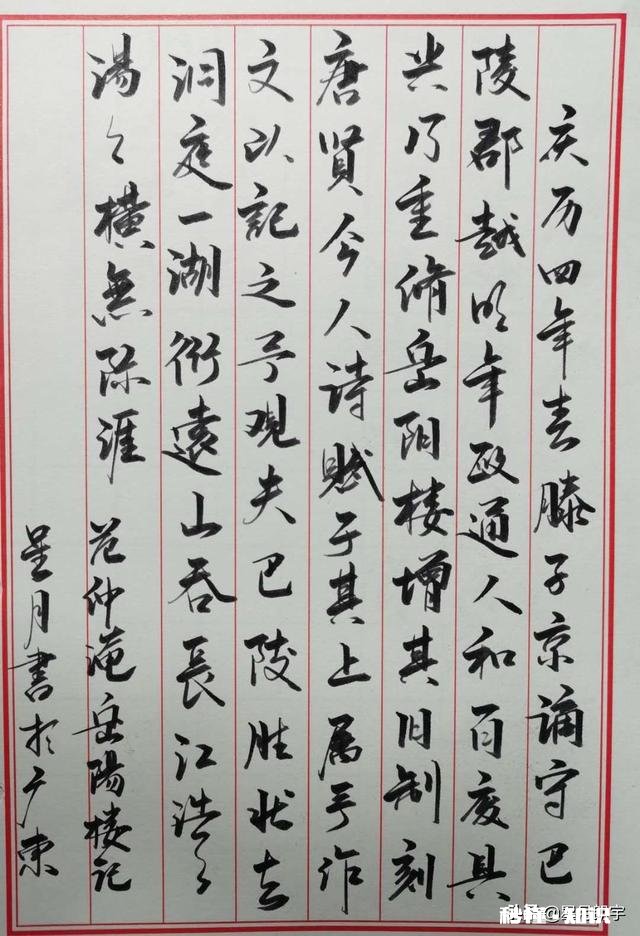 庆历四年春滕子京谪守巴
陵郡越明年政通人和百废具
兴乃重修岳阳楼增其旧制刻
唐贤今人诗赋于其上属予作
文以记之予观夫巴陵胜状在
洞庭一湖衔遠山吞長江浩々
湯々横無际涯 范仲淹岳陽楼記
星月書於广東